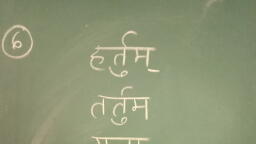 ६
हर्तुम्
तर्तुम